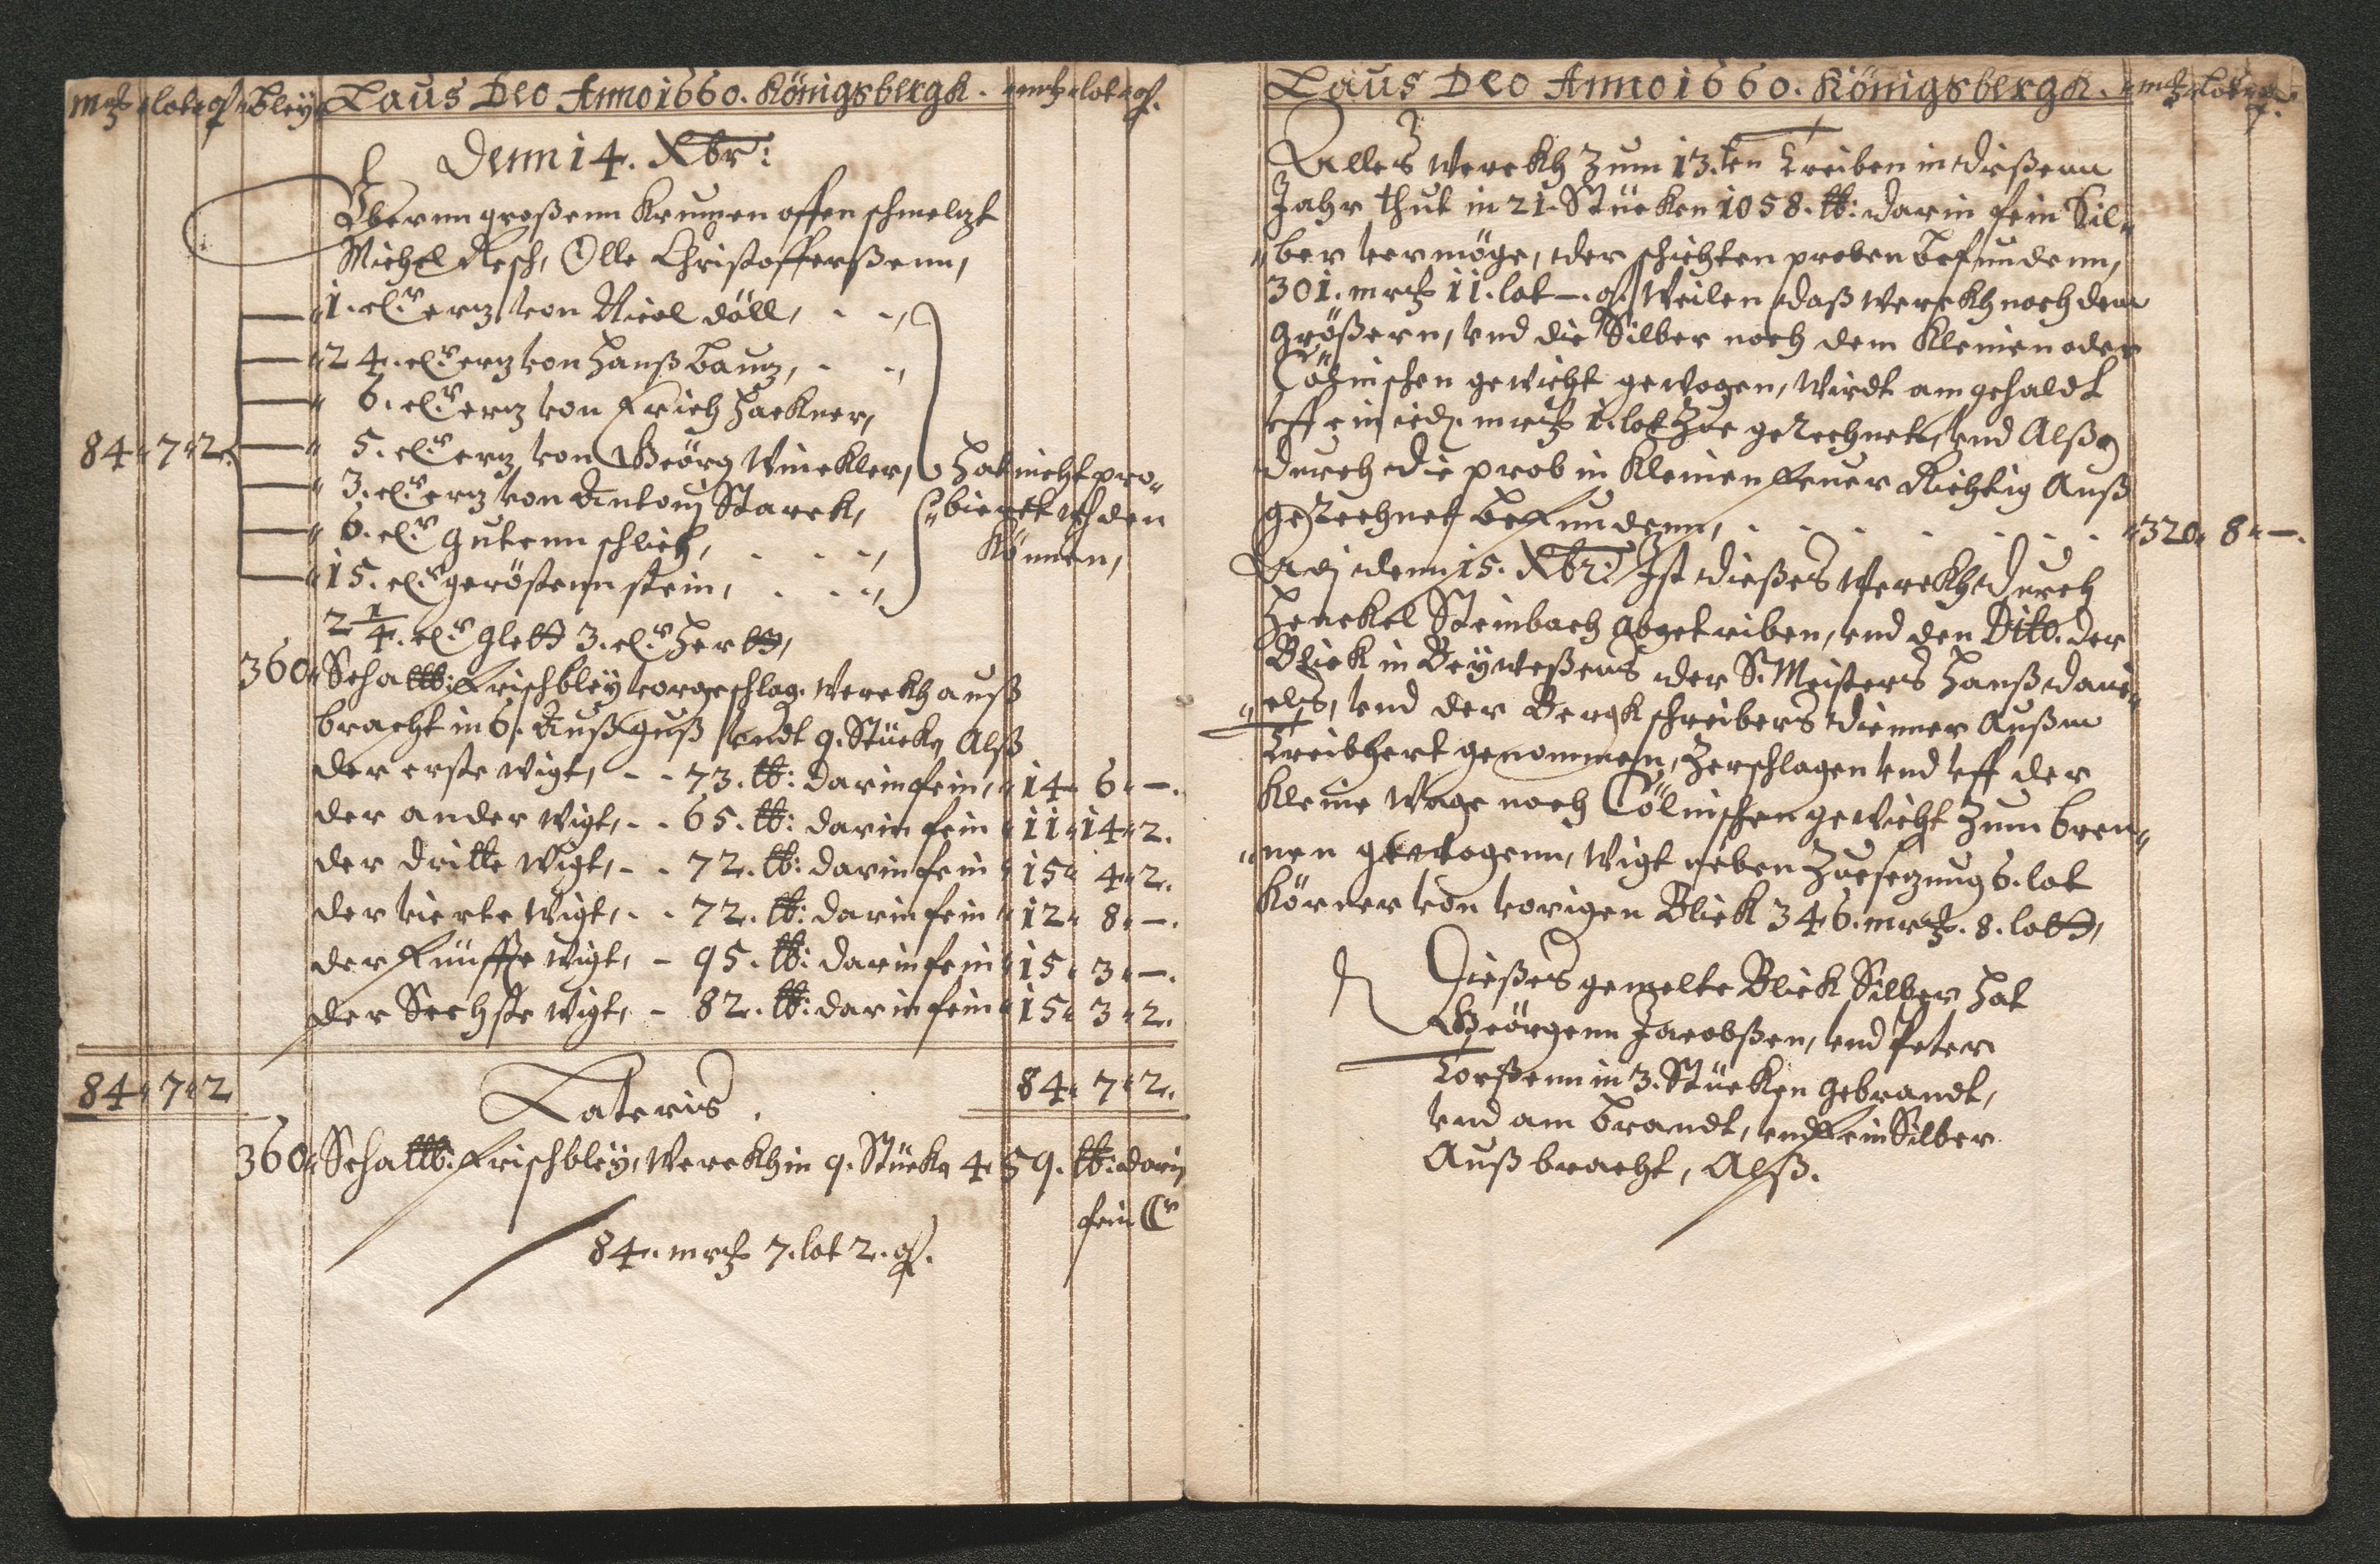 mrk lot q bleÿ Laus Deo Anno 1660. Königsbergk. mrk lot q.
Denn 14. Xbr:
Vbernn großenn Krumen offen schmelzt
Michel Resch, Olle Christofferßenn,
1. Ctr erz von Nicol döll,
24. Ctr erz von Hanß Bauz,
6. Ctr erz von Erich Hackner,
84 7 2. 5. Ctr erz von Geörg Winckler, Hat nicht pro-
3. Ctr erz von Antonj Starck, biert wrden
6. Ctr gutenn schlich, Können,
15. Ctr geröstenn stein,
2 1/4. Ctr Glett 3. Ctr Hertt,
360 Scha ttb: Frischbleÿ vorgeschlag. Werckh auß
bracht in 6. Außguß vndt 9. Stücke Alß
der erste wigt, - - 73. tb: darin fein, 14 6 -.
der ander wigt, - - 65. tb: darin fein 11 14 2.
der dritte wigt, - - 72. tb: darin fein 15 4 2.
der vierte wigt, - - 72. tb: darin fein 12 8 -.
der Fünffte wigt, - 95. tb: darin fein 15 3 -.
der Sechste wigt, - 82. tb: darin fein 15 3 2.
84 7 2 Lateris. 84 7 2.
360 Scha ttb: Frischbleÿ, Werckh in 9. Stücke 459. tb: darin
fein
84. mrk 7. lot 2. q.
Laus Deo Anno 1660. Königsbergk. mrk lot q.
Alles Werckh Zum 13.ten Treiben in dießenn
Jahr thut in 21. Stücken 1058. tb: darin fein Sil-
ber vermöge, der schichten proben befundenn,
301. mrk 11. lot -. q. Weilen daß Werckh noch dem
größern, vnd die Silber noch dem Kleinen oder
Cölnischen gewicht gewogen, Wirdt am gehaldt
vff ein ied. mrk 1. lot Zue gerechnet, vnd Alßo
durch die prob in Kleinen Feuer Richtig Auß
gerechnet befundenn, 320 8 -.
Adj denn 15. Xbr: Ist dießes Werckh durch
Henckel Steinbach abgetriben, vnd den Dito. der
Blick in Beÿweßens der S. Meisters Hanß Dani-
els, vnd der Bergk schreibers dienner Außm
Treibhert genommen, Zerschlagen vnd vff der
Kleine Wage noch Cölnischen gewicht Zum bren-
nen gewogenn, Wigt neben Zuesezung 6. lot
Körner von vorigen Blick 346. mrk. 8. lott,
Dießes gemelte Blick Silber Hat
Geörgenn Jacobßen, vnd Peter
Torßenn in 3. Stücken Gebrandt,
vnd am brandt, an Fein Silber
Auß bracht, Alß.